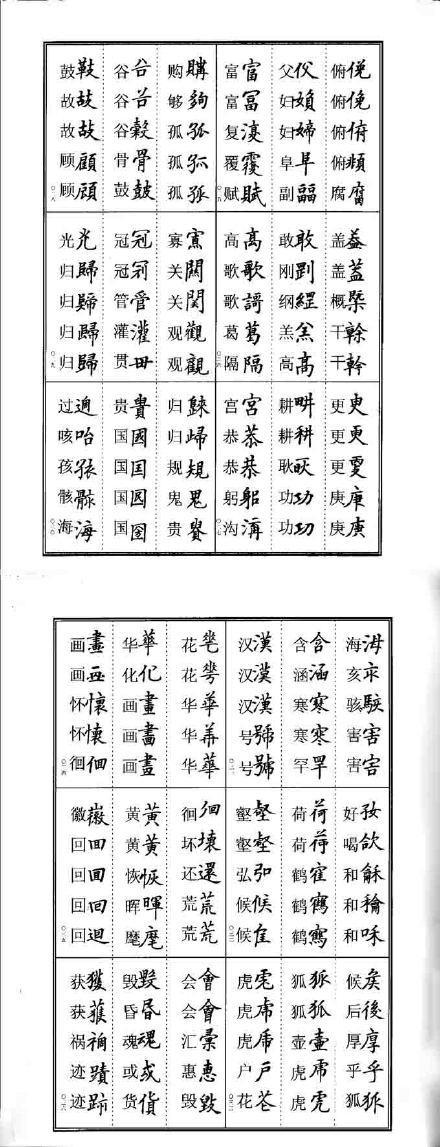 俯俛 俯俛 俯俯 俯頫 腐腐
父父 妇媍 妇婦 阜阜 副副
富富 富冨 复復 覆覆 赋賦
购購 够夠 孤孤 孤孤 孤孤
谷谷 谷谷 谷穀 骨骨 鼓鼓
鼓鼓 故故 故故 顾顧 顾顧
盖盖 盖蓋 概槩 干幹 干幹
敢敢 刚剛 纲綱 羔羔 高高
高高 歌歌 歌謌 葛葛 隔隔
寡寡 关關 关関 观觀 观觀
冠冠 冠冠 管管 灌灌 贯毌
光光 归歸 归歸 归歸 归歸
更更 更更 更更 庚庚 庚庚
耕畊 耕耕 耿耿 功功 功功
宫宮 恭恭 恭恭 躬躳 沟溝
归歸 归歸 规規 鬼鬼 贵貴
贵貴 国國 国囯 国國 国圀
过過 咳咍 孩孩 骸骸 海海
海海 亥亥 骇駭 害害 害害
含含 涵涵 寒寒 寒寒 罕罕
汉漢 汉漢 汉漢 号號 号號
花花 花花 华華 华華 华華
华華 化化 画畫 画畵 画畫
画畫 画画 怀懷 怀懷 徊徊
好好 喝欱 和龢 和和 和咊
荷荷 荷荷 鹤鶴 鹤鶴 鹤鶴
壑壑 壑壑 弘弘 候候 候候
徊徊 坏壞 还還 荒荒 荒荒
黄黃 黄黃 恢恢 晖暉 麾麾
徽徽 回回 回回 回回 回迴
候矦 后後 厚厚 乎乎 狐狐
狐狐 狐狐 壶壺 虎虎 虎虎
虎虎 虎虎 虎虎 户戶 花花
会會 会會 汇彙 惠惠 毁毀
毁毀 昏昏 魂魂 或或 货貨
获獲 获獲 祸禍 迹蹟 迹跡